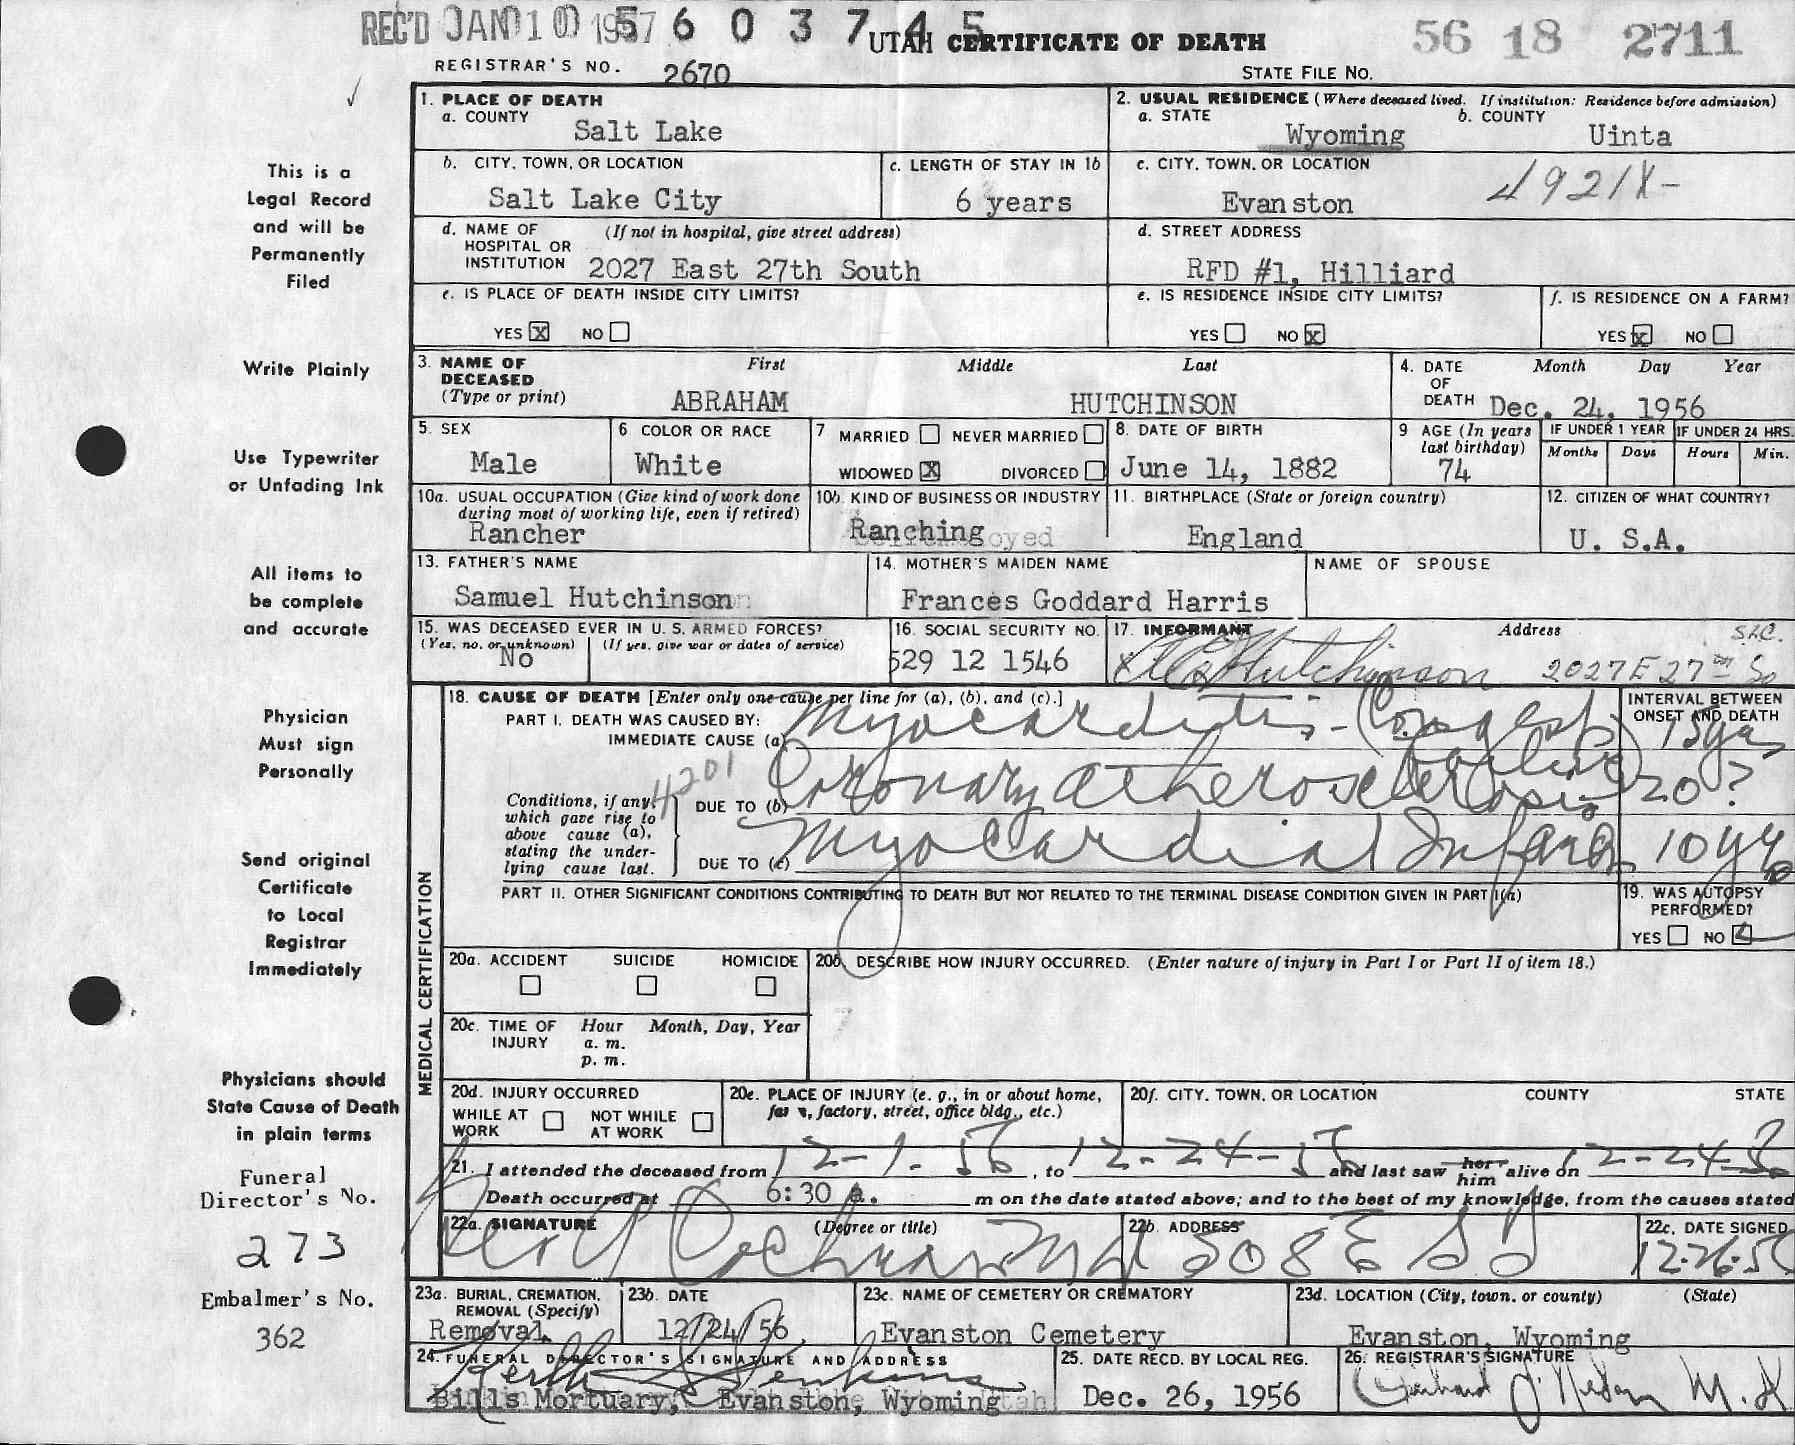 REC'D JAN 10 1957 5603745
UTAH CERTIFICATE OF DEATH
56 18 2711
REGISTRAR'S NO. 2670
STATE FILE NO.
1. PLACE OF DEATH
a. COUNTY Salt Lake
2. USUAL RESIDENCE (Where deceased lived. If institution: Residence before admission)
a. STATE Wyoming b. COUNTY Uinta
b. CITY, TOWN, OR LOCATION Salt Lake City
c. LENGTH OF STAY IN 1b 6 years
c. CITY, TOWN, OR LOCATION Evanston
4921X-
d. NAME OF HOSPITAL OR INSTITUTION (If not in hospital, give street address)
2027 East 27th South
d. STREET ADDRESS
RFD #1, Hilliard
e. IS PLACE OF DEATH INSIDE CITY LIMITS?
YES X NO
e. IS RESIDENCE INSIDE CITY LIMITS?
YES NO X
f. IS RESIDENCE ON A FARM?
YES X NO
3. NAME OF DECEASED (Type or print) First Middle Last
ABRAHAM HUTCHINSON
4. DATE OF DEATH Month Day Year
Dec. 24, 1956
5. SEX Male
6 COLOR OR RACE White
7 MARRIED NEVER MARRIED
WIDOWED X DIVORCED
8. DATE OF BIRTH June 14, 1882
9 AGE (In years last birthday) 74
IF UNDER 1 YEAR Months Days
IF UNDER 24 HRS. Hours Min.
10a. USUAL OCCUPATION (Give kind of work done during most of working life, even if retired)
Rancher
10b. KIND OF BUSINESS OR INDUSTRY
Ranching
11. BIRTHPLACE (State or foreign country)
England
12. CITIZEN OF WHAT COUNTRY?
U. S.A.
13. FATHER'S NAME
Samuel Hutchinson
14. MOTHER'S MAIDEN NAME
Frances Goddard Harris
NAME OF SPOUSE
15. WAS DECEASED EVER IN U. S. ARMED FORCES?
(Yes, no, or unknown) (If yes, give war or dates of service)
No
16. SOCIAL SECURITY NO.
529 12 1546
17. INFORMANT Address
Hutchinson 2027 E 27th So S.L.C.
MEDICAL CERTIFICATION
18. CAUSE OF DEATH [Enter only one cause per line for (a), (b), and (c).]
INTERVAL BETWEEN ONSET AND DEATH
PART I. DEATH WAS CAUSED BY:
IMMEDIATE CAUSE (a) Myocarditis - Congest failure 15 yrs
4201
Conditions, if any, which gave rise to above cause (a), stating the underlying cause last.
DUE TO (b) Coronary atherosclerosis 20?
DUE TO (c) Myocardial Infarct 10 yrs
PART II. OTHER SIGNIFICANT CONDITIONS CONTRIBUTING TO DEATH BUT NOT RELATED TO THE TERMINAL DISEASE CONDITION GIVEN IN PART I(a)
19. WAS AUTOPSY PERFORMED?
YES NO
20a. ACCIDENT SUICIDE HOMICIDE
20b. DESCRIBE HOW INJURY OCCURRED. (Enter nature of injury in Part I or Part II of item 18.)
20c. TIME OF INJURY Hour Month, Day, Year
a. m.
p. m.
20d. INJURY OCCURRED
WHILE AT WORK NOT WHILE AT WORK
20e. PLACE OF INJURY (e. g., in or about home, farm, factory, street, office bldg., etc.)
20f. CITY, TOWN, OR LOCATION COUNTY STATE
21. I attended the deceased from 12-1-56, to 12-24-56 and last saw her him alive on 12-24-56
Death occurred at 6:30 a. m on the date stated above; and to the best of my knowledge, from the causes stated
22a. SIGNATURE (Degree or title)
Cochran MD
22b. ADDRESS
508 E
22c. DATE SIGNED
12-26-56
23a. BURIAL, CREMATION, REMOVAL (Specify)
Removal
23b. DATE
12/24/56
23c. NAME OF CEMETERY OR CREMATORY
Evanston Cemetery
23d. LOCATION (City, town, or county) (State)
Evanston, Wyoming
24. FUNERAL DIRECTOR'S SIGNATURE AND ADDRESS
Keith Jenkins
Bills Mortuary, Evanston, Wyoming
25. DATE RECD. BY LOCAL REG.
Dec. 26, 1956
26. REGISTRAR'S SIGNATURE
This is a
Legal Record
and will be
Permanently
Filed
Write Plainly
Use Typewriter
or Unfading Ink
All items to
be complete
and accurate
Physician
Must sign
Personally
Send original
Certificate
to Local
Registrar
Immediately
Physicians should
State Cause of Death
in plain terms
Funeral
Director's No.
273
Embalmer's No.
362